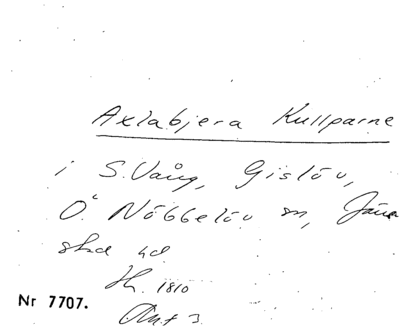 Axlabjera Kullparne
i S. Vång, Gislöv,
Ö. Nöbbelöv sn, Järre
stad hd
Hk. 1810
Ant 3
Nr 7707.